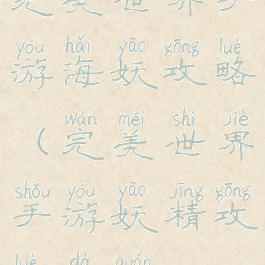 完美世界手
yóu hǎi yāo gōng lüè
游海妖攻略
wán měi shì jiè
（完美世界
shǒu yóu yāo jīng gōng
手游妖精攻
lüè dà quán